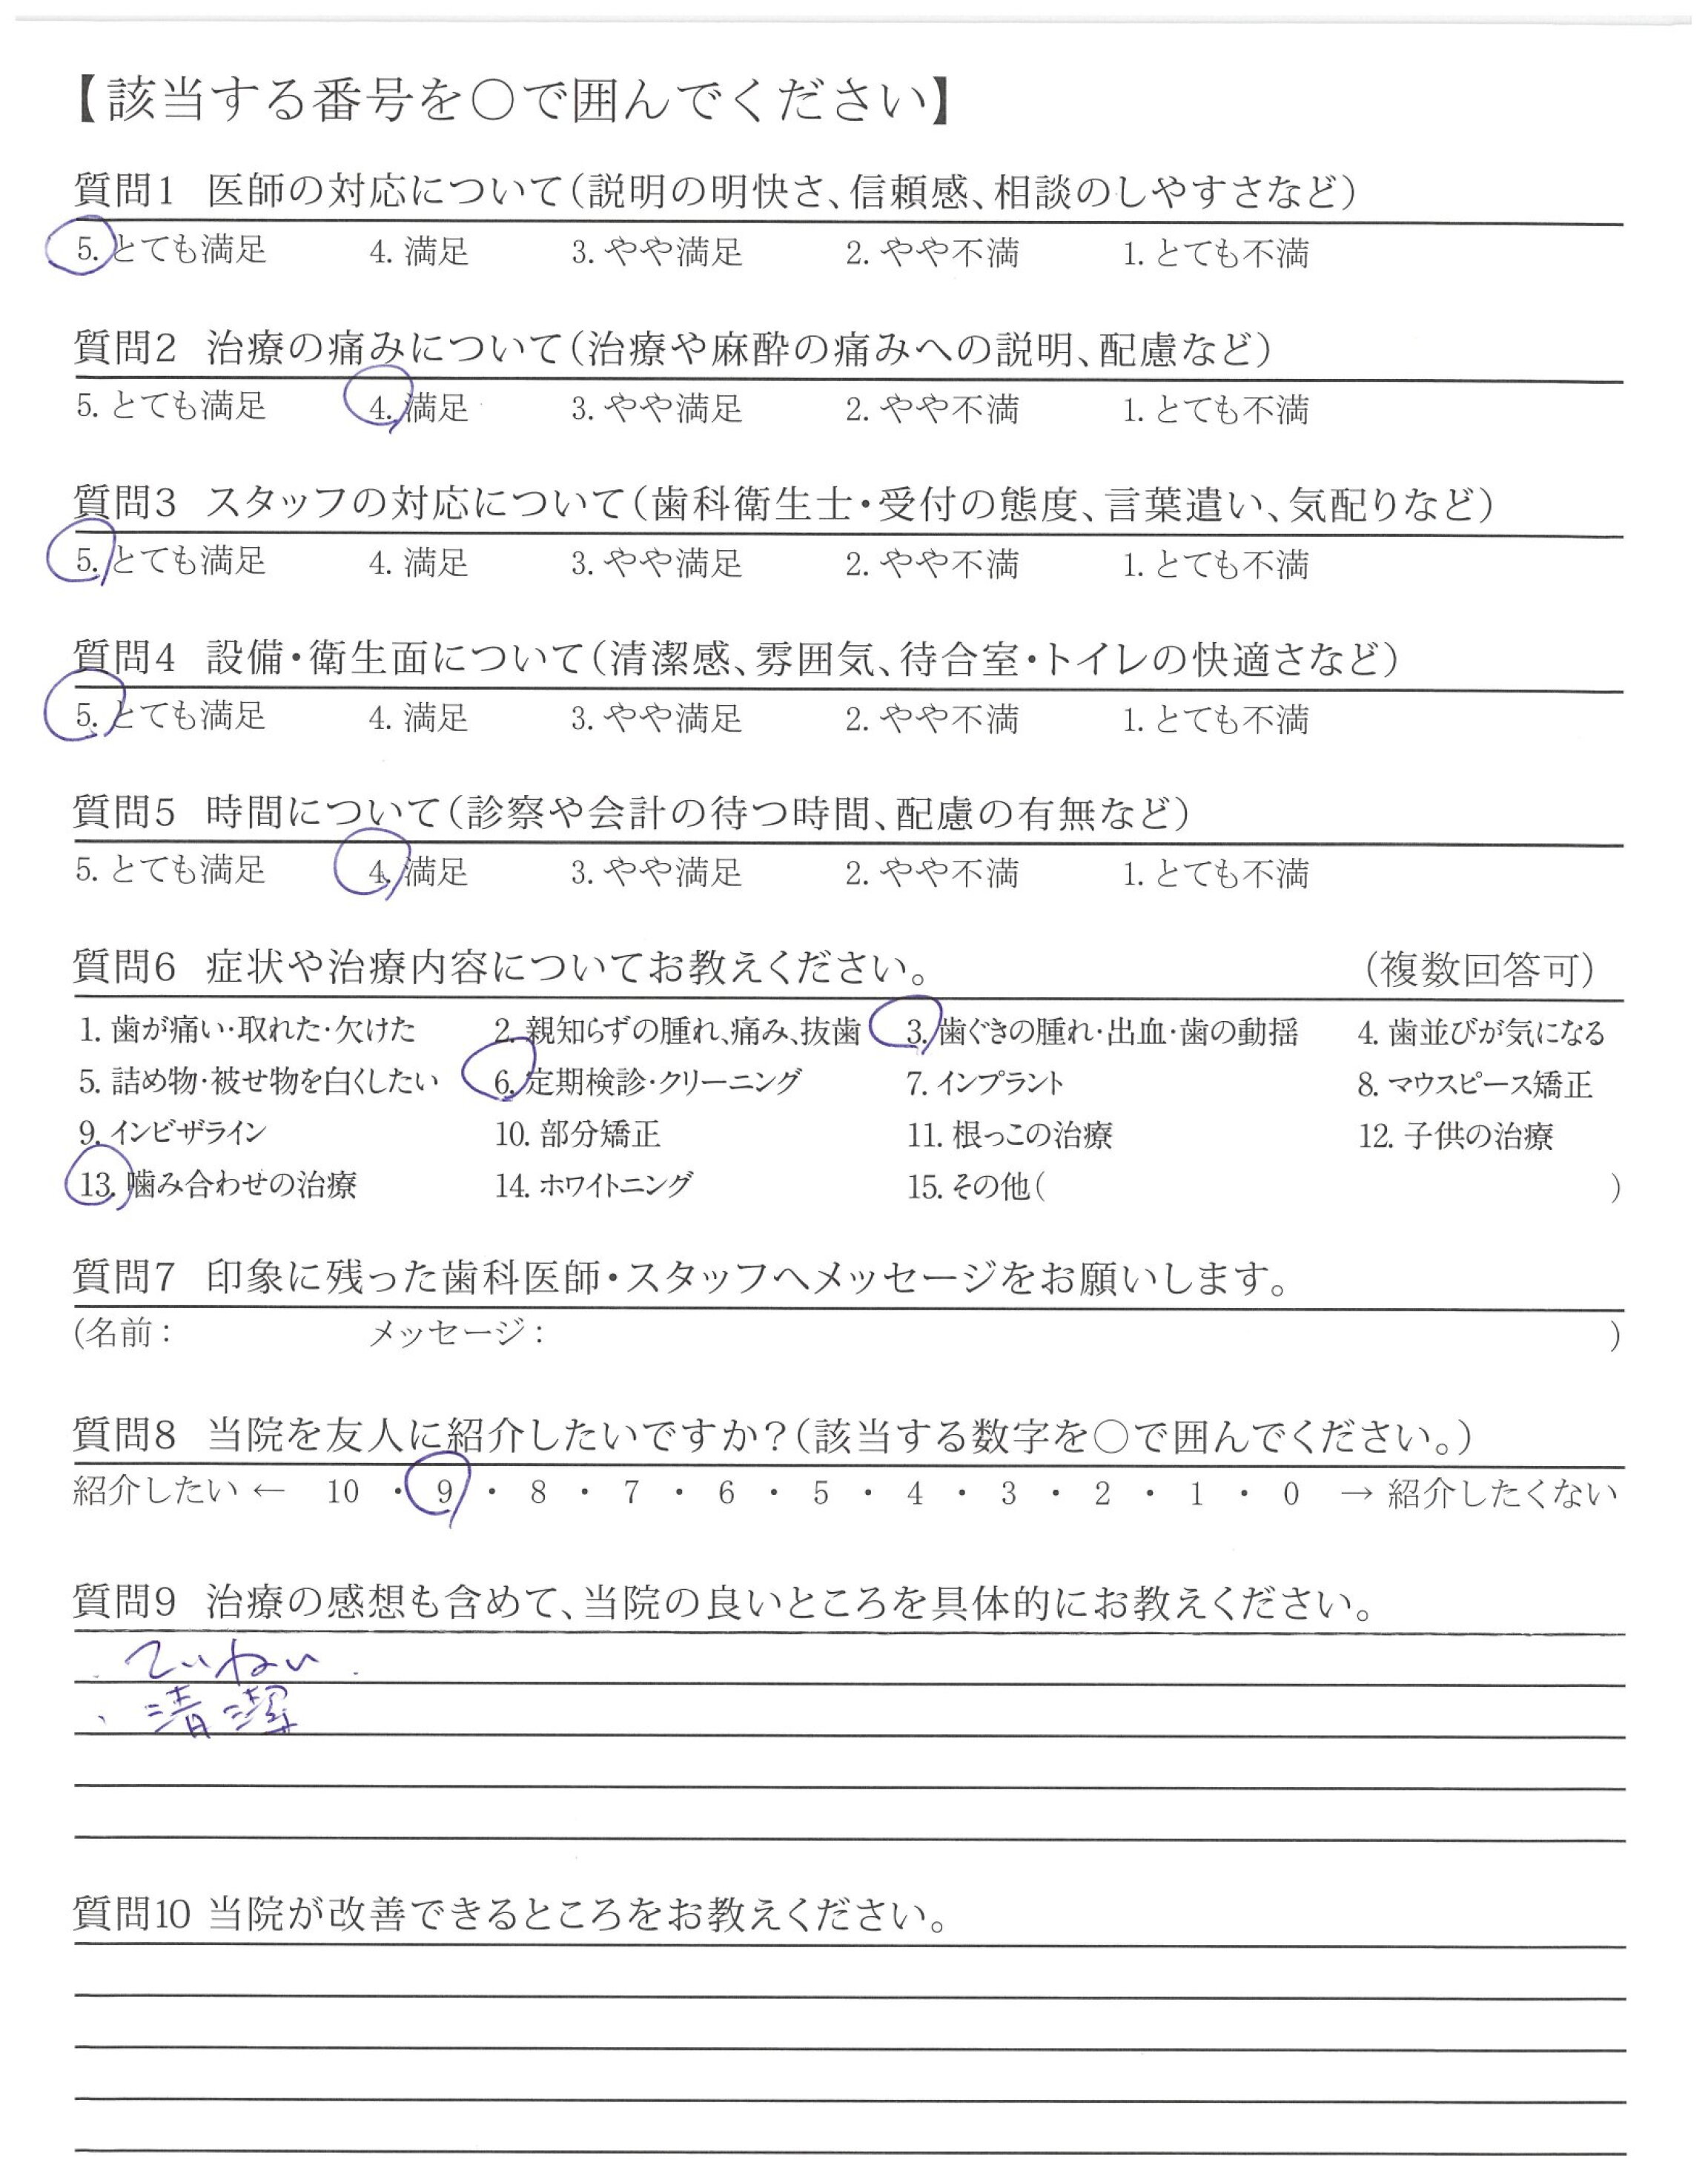 【該当する番号を○で囲んでください】
質問1 医師の対応について(説明の明快さ、信頼感、相談のしやすさなど)
5. とても満足 4. 満足 3. やや満足 2. やや不満 1. とても不満
質問2 治療の痛みについて(治療や麻酔の痛みへの説明、配慮など)
5. とても満足 4. 満足 3. やや満足 2. やや不満 1. とても不満
質問3 スタッフの対応について(歯科衛生士・受付の態度、言葉遣い、気配りなど)
5. とても満足 4. 満足 3. やや満足 2. やや不満 1. とても不満
質問4 設備・衛生面について(清潔感、雰囲気、待合室・トイレの快適さなど)
5. とても満足 4. 満足 3. やや満足 2. やや不満 1. とても不満
質問5 時間について(診察や会計の待つ時間、配慮の有無など)
5. とても満足 4. 満足 3. やや満足 2. やや不満 1. とても不満
質問6 症状や治療内容についてお教えください。 (複数回答可)
1. 歯が痛い・取れた・欠けた 2. 親知らずの腫れ、痛み、抜歯 3. 歯ぐきの腫れ・出血・歯の動揺 4. 歯並びが気になる
5. 詰め物・被せ物を白くしたい 6. 定期検診・クリーニング 7. インプラント 8. マウスピース矯正
9. インビザライン 10. 部分矯正 11. 根っこの治療 12. 子供の治療
13. 噛み合わせの治療 14. ホワイトニング 15. その他( )
質問7 印象に残った歯科医師・スタッフへメッセージをお願いします。
(名前: メッセージ: )
質問8 当院を友人に紹介したいですか?(該当する数字を○で囲んでください。)
紹介したい ← 10 ・ 9 ・ 8 ・ 7 ・ 6 ・ 5 ・ 4 ・ 3 ・ 2 ・ 1 ・ 0 → 紹介したくない
質問9 治療の感想も含めて、当院の良いところを具体的にお教えください。
・ていねい.
・清潔
質問10 当院が改善できるところをお教えください。